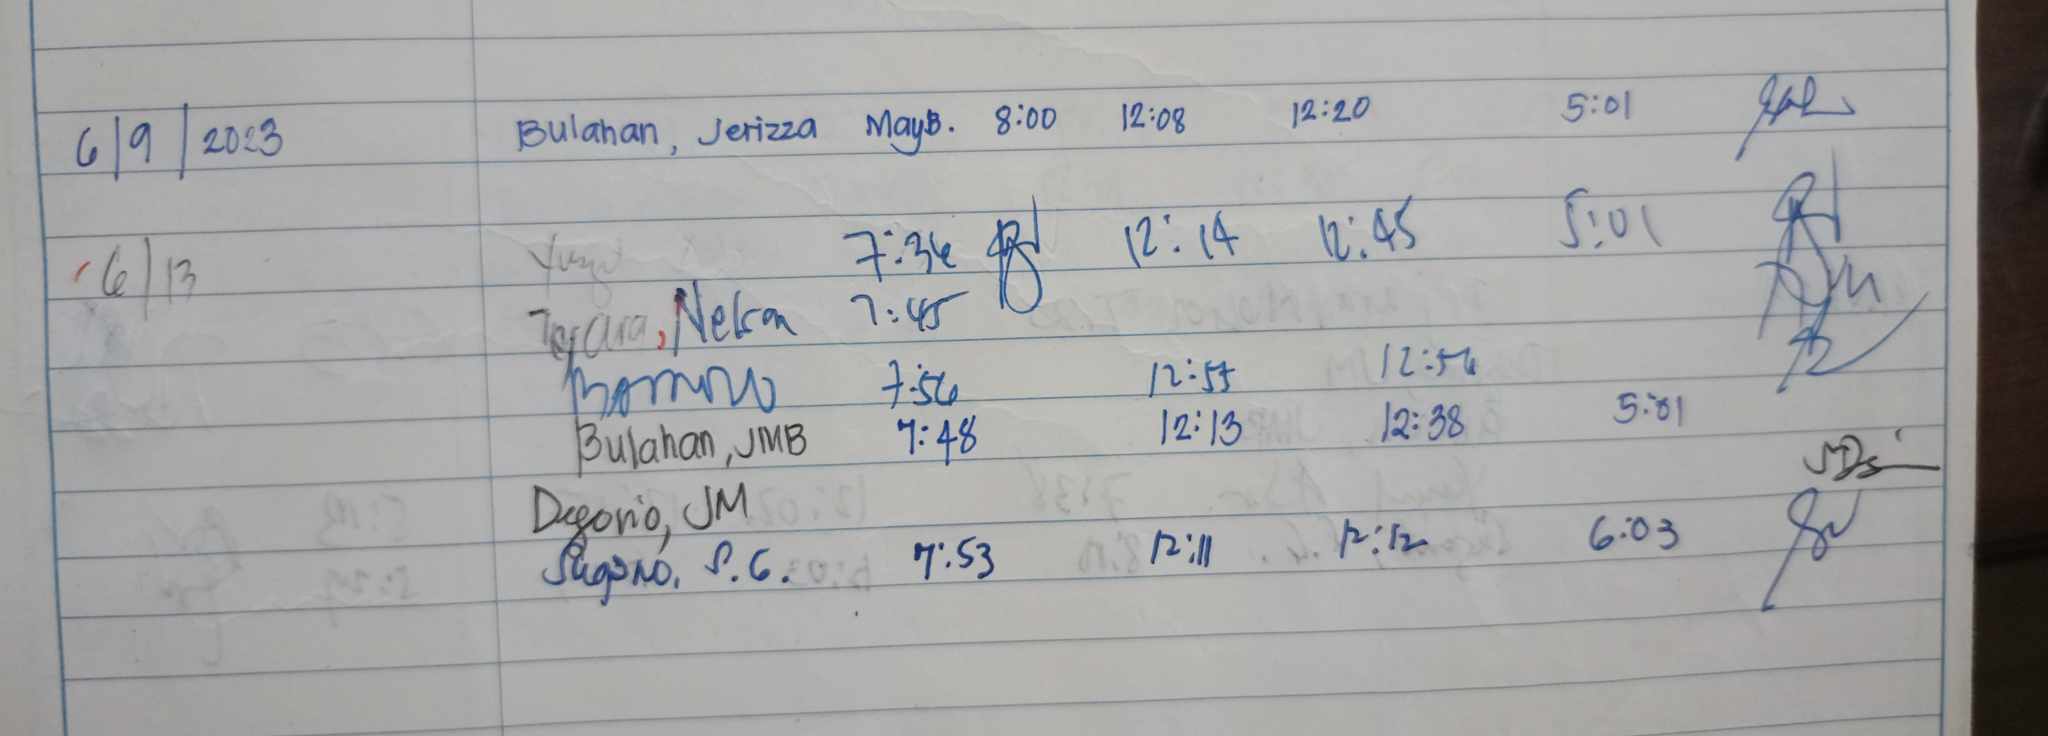 6/9/2023 Bulahan, Jerizza MayB. 8:00 12:08 12:20 5:01
6/13 7:36 12:14 12:45 5:01
Nelson 7:45
7:56 12:55 12:56
Bulahan, JMB 7:48 12:13 12:38 5:01
Degorio, JM
S.G. 7:53 12:11 12:12 6:03